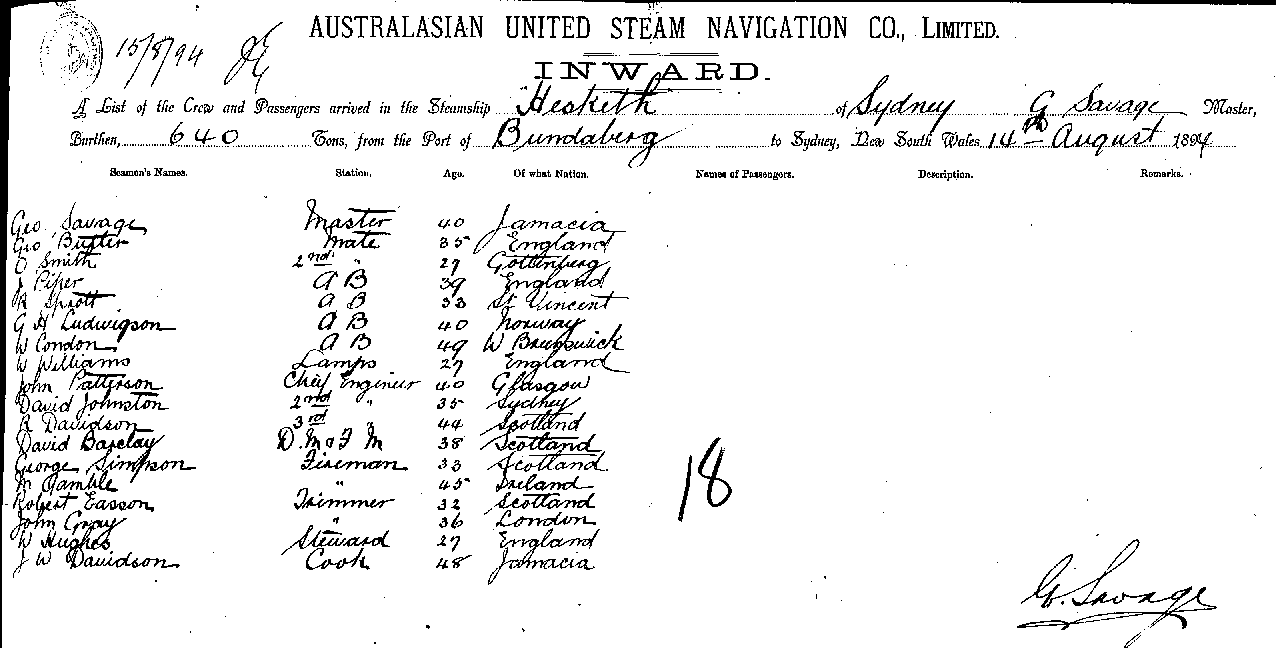 15/8/94
AUSTRALASIAN UNITED STEAM NAVIGATION CO., LIMITED.
INWARD.
A List of the Crew and Passengers arrived in the Steamship Hesketh of Sydney G Savage Master,
Burthen, 640 Tons, from the Port of Bundaberg to Sydney, New South Wales 14th August 1894
Seamen's Names. Station. Age. Of what Nation. Names of Passengers. Description. Remarks.
Geo. Savage Master 40 Jamacia
Geo Butter Mate 35 England
Smith 2nd " 27 Gottenberg
J Piper A B 39 England
Sprott A B 33 St Vincent
G H Ludwigson A B 40 Norway
W Condon A B 49 Brunswick
W Williams Lamps 27 England
John Patterson Chief Engineer 40 Glasgow
David Johnston 2nd " 35 Sydney
R Davidson 3rd " 44 Scotland
David Barclay D. M & F M 38 Scotland
George Simpson Fireman 33 Scotland
M Gamble " 45 Ireland
Robert Easson Trimmer 32 Scotland
John Gray " 36 London
W Hughes Steward 27 England
J W Davidson Cook 48 Jamacia
18
G. Savage